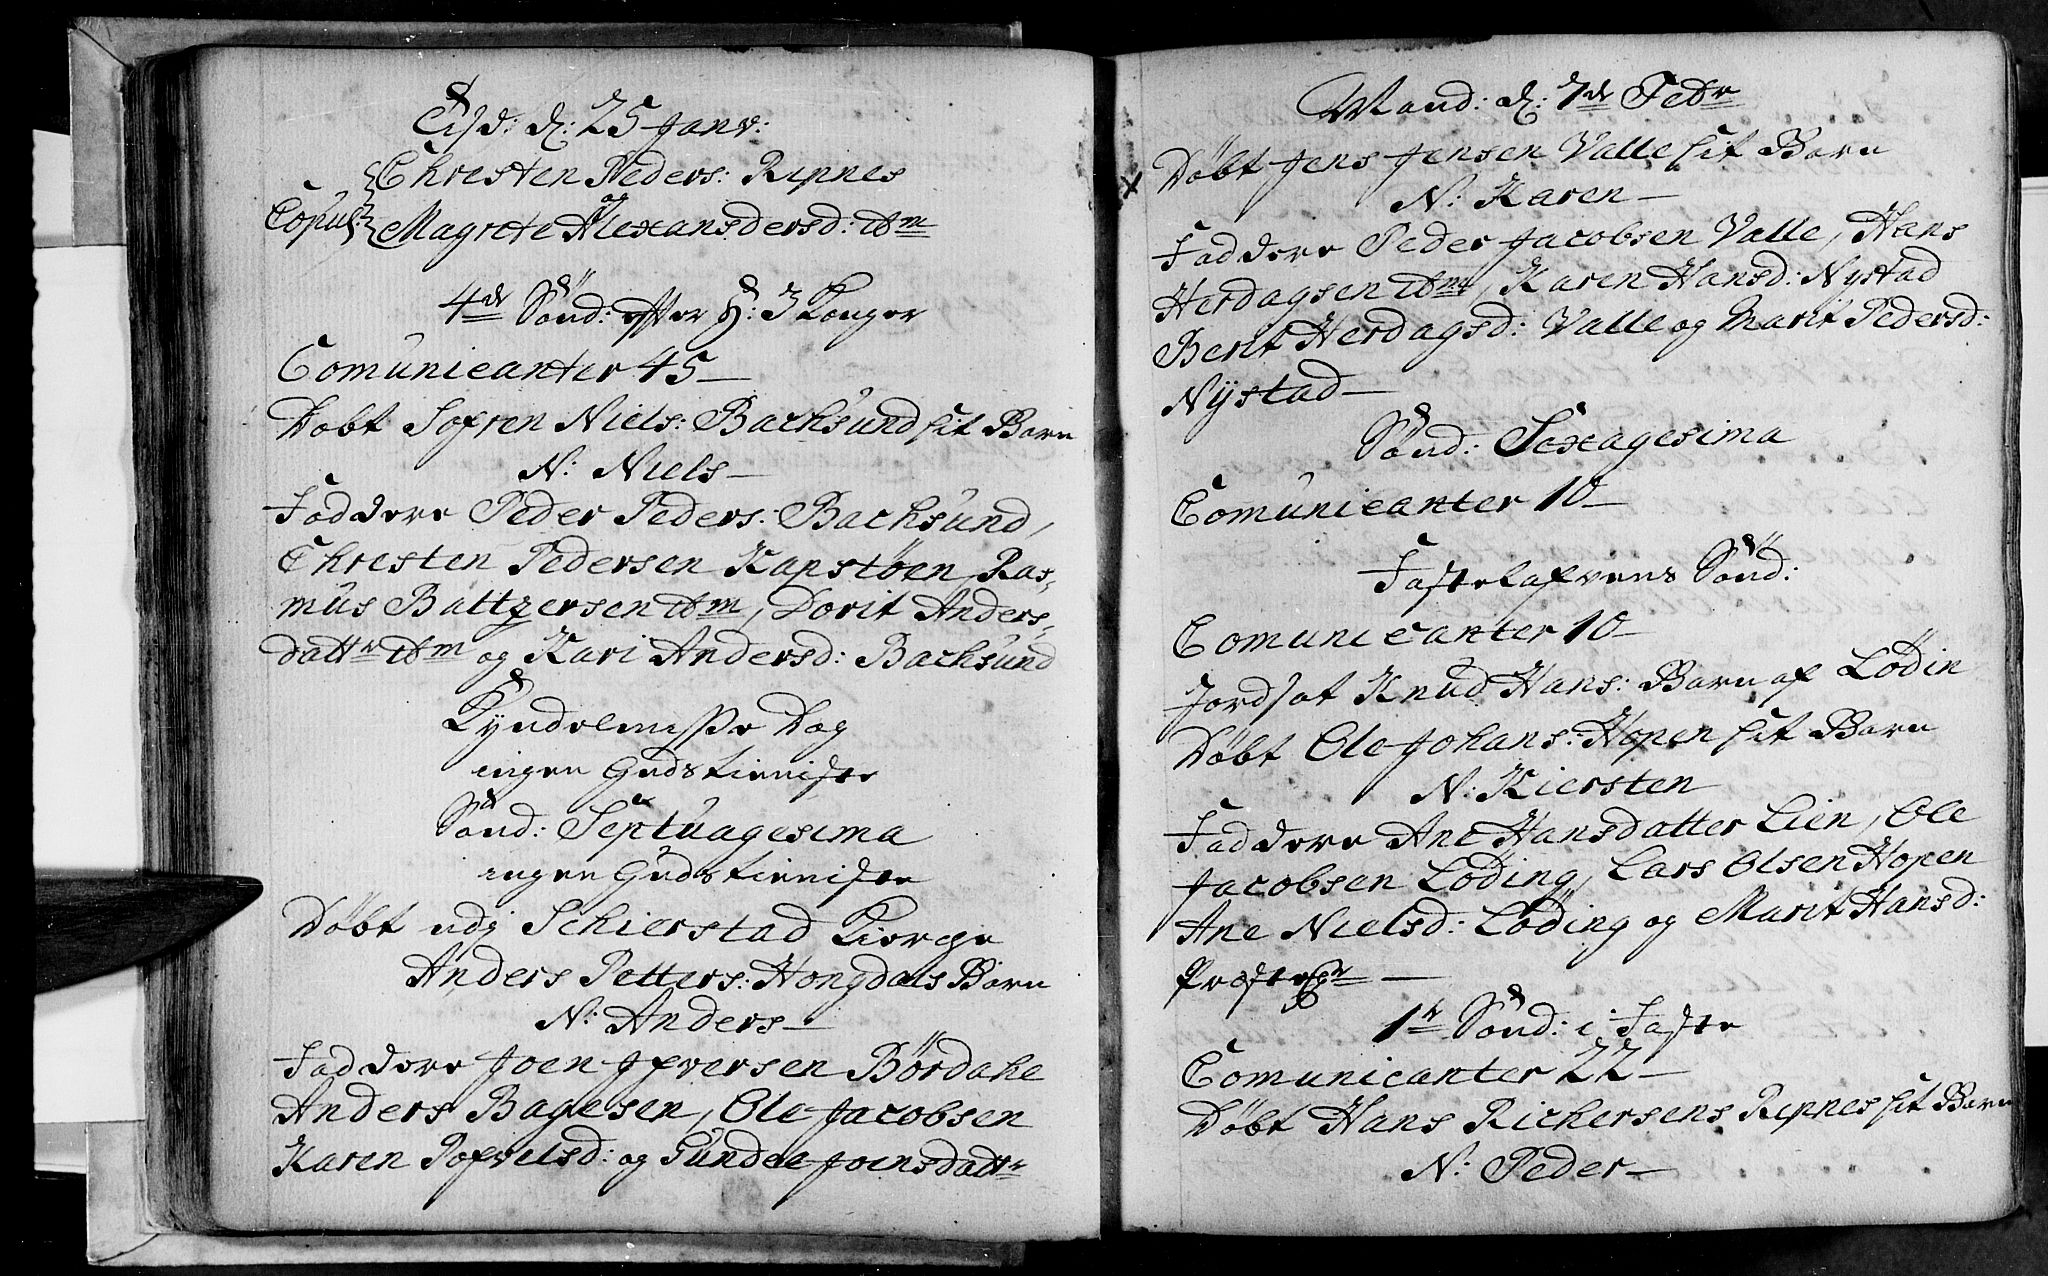 Tisd: d: 25 Janv:
Christen Peders: Ripnes
og
Copul: Magrete Alexansdersd: ibm
4de Sönd: efter H: 3 Konger
Comunicanter 45 —
Döbt Sofren Niels: Bachsund sit Barn
N: Niels —
Faddere Peder Peders: Bachsund,
Christen Pedersen Kapstöen, Ras-
mus Baltzersen ibm, Dorit Anders-
dattr ibm og Kari Andersd: Bachsund
Kyndelmisse Dag
ingen Gudstieniste
Sönd: Septuagesima
ingen Gudstieniste
Döbt udj Schierstad Kierche
Anders Petters: Hongdals Barn
N: Anders —
Faddere Joen Jfversen Bördahl
Anders Bagesen, Ole Jacobsen
Karen Pofvelsd: og Gundel Joensdattr
Mand: d: 7de Febr
Döbt Jens Jensen Valle sit Barn
N: Karen —
Faddere Peder Jacobsen Valle, Hans
Herdagsen ibm, Karen Hansd: Nystad
Berit Herdagsd: Valle og Marit Pedersd:
Nystad —
Sönd: Sexagesima
Comunicanter 10 —
Fastelafvens Sönd:
Comunicanter 10 —
Jordsat Knud Hans: Barn af Lödin
Döbt Ole Johans: Hopen sit Barn
N: Kiersten
Faddere Ane Hansdatter Lien, Ole
Jacobsen Löding, Lars Olsen Hopen
Ane Nielsd: Löding og Marit Hansd:
—
1te Sönd: i Faste
Comunicanter 22 —
Döbt Hans Richersens Ripnes sit Barn
N: Peder —